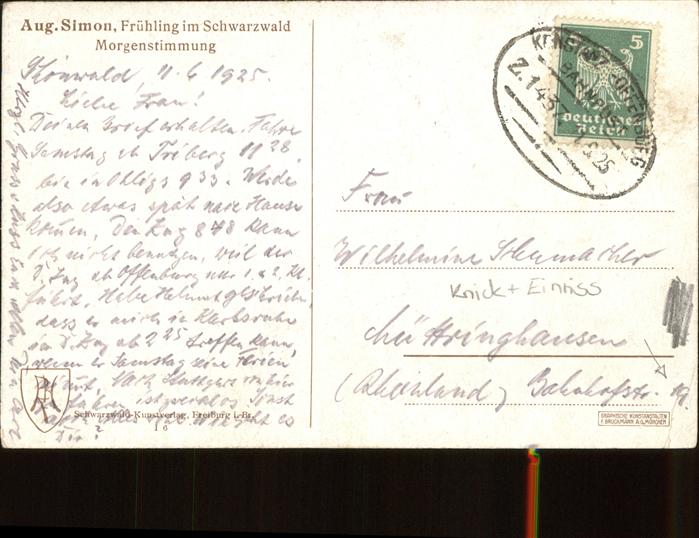 Aug. Simon, Frühling im Schwarzwald
Morgenstimmung
Schönwald, 11.6 1925.
Liebe Frau!
Deinen Brief erhalten. Fahre
Samstag ab Triberg 11 28
bin in Ohligs 9 33. Werde
also etwas spät nach Hause
kommen, Den Zug 8 48 kann
ich nicht benutzen, weil der
D. Zug ab Offenburg nur 1. u 2. Kl.
führt. Habe Helmut geschrieben,
dass er mich in Karlsruhe
im D. Zug ab 2 25 treffen kann,
wenn er Samstag seine Ferien
ist zwecklos. Sonst
geht es
Dir?
Schwarzwald-Kunstverlag, Freiburg i. Br.
I 6
KONSTANZ - OFFENBURG
BAHNPOST
Z. 143
6.25
5
Deutsches
Reich
Frau
Wilhelmine
Knick + Einriss
Lüttringhausen
(Rheinland) Bahnhofstr.
GRAPHISCHE KUNSTANSTALTEN
F. BRUCKMANN A.G. MÜNCHEN